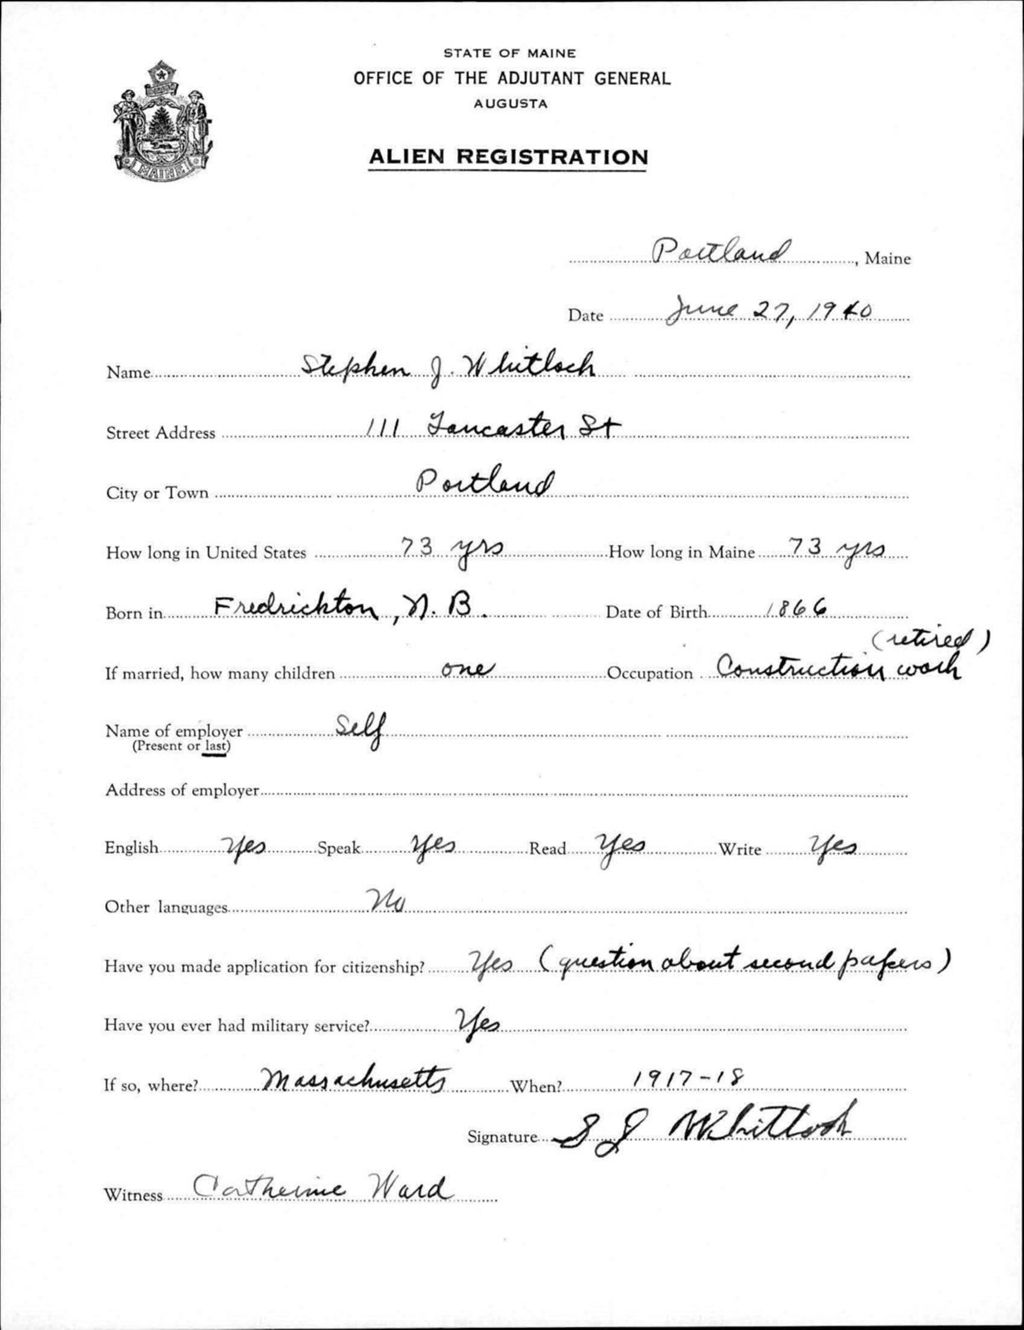 STATE OF MAINE
OFFICE OF THE ADJUTANT GENERAL
AUGUSTA
MAINE
ALIEN REGISTRATION
Portland, Maine
Date June 27, 1940
Name Stephen J. Whitloch
Street Address 111 Lancaster St
City or Town Portland
How long in United States 73 yrs How long in Maine 73 yrs
Born in Fredrickton, N. B. Date of Birth 1866
(retired)
If married, how many children one Occupation Construction work
Name of employer Self
(Present or last)
Address of employer
English Yes Speak Yes Read Yes Write Yes
Other languages No
Have you made application for citizenship? Yes (question about second papers)
Have you ever had military service? Yes
If so, where? Massachusetts When? 1917-18
Signature S J Whitlock
Witness Catherine Ward